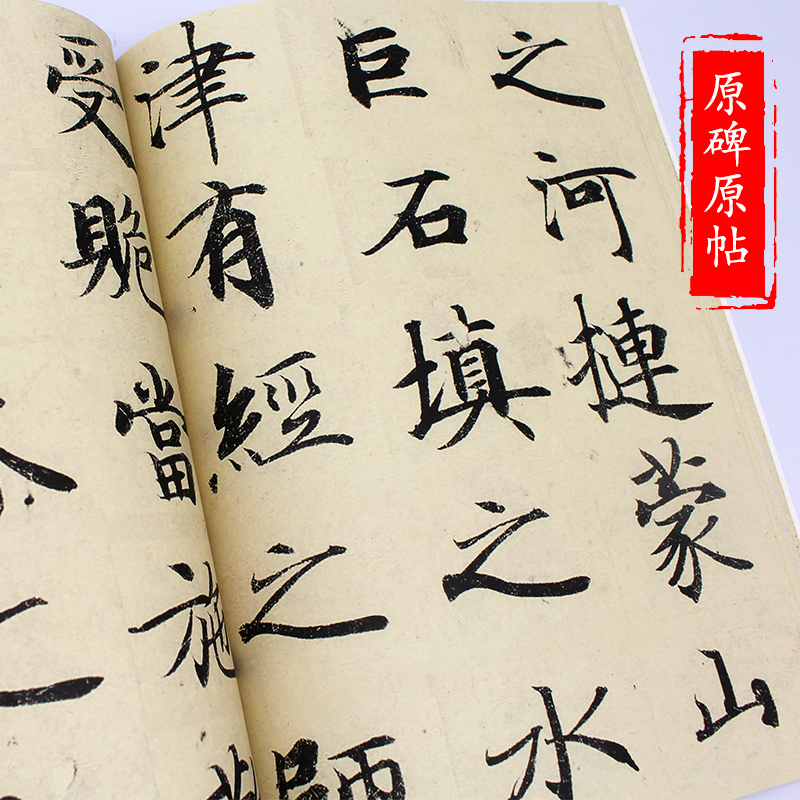 之河槤蒙山
巨石填之水
津有經之
受
當施
原碑原帖